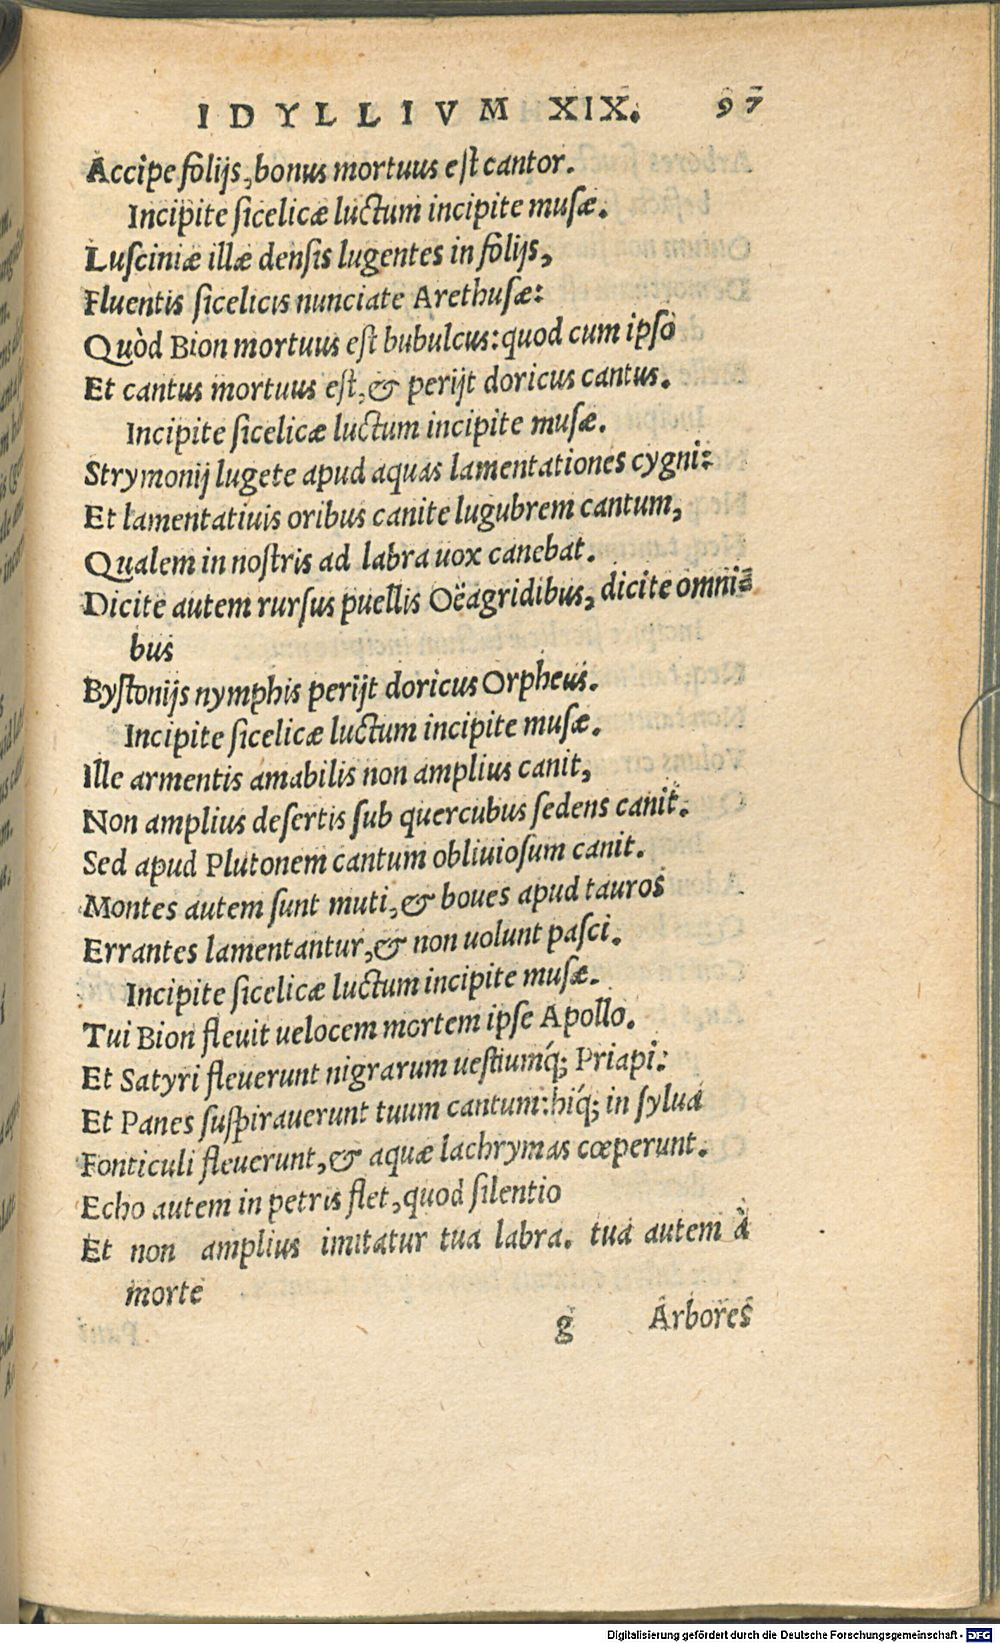 IDYLLIVM XIX. 97
Accipe folijs, bonus mortuus est cantor.
Incipite sicelicæ luctum incipite musæ.
Lusciniæ illæ densis lugentes in folijs,
Fluentis sicelicis nunciate Arethusæ:
Quòd Bion mortuus est bubulcus: quod cum ipso
Et cantus mortuus est, & perijt doricus cantus.
Incipite sicelicæ luctum incipite musæ.
Strymonij lugete apud aquas lamentationes cygni:
Et lamentatiuis oribus canite lugubrem cantum,
Qualem in nostris ad labra uox canebat.
Dicite autem rursus puellis Oëagridibus, dicite omni-
bus
Bystonijs nymphis perijt doricus Orpheus.
Incipite sicelicæ luctum incipite musæ.
Ille armentis amabilis non amplius canit,
Non amplius desertis sub quercubus sedens canit.
Sed apud Plutonem cantum obliuiosum canit.
Montes autem sunt muti, & boues apud tauros
Errantes lamentantur, & non uolunt pasci.
Incipite sicelicæ luctum incipite musæ.
Tui Bion fleuit uelocem mortem ipse Apollo.
Et Satyri fleuerunt nigrarum uestiumq́; Priapi:
Et Panes suspirauerunt tuum cantum: hiq́; in sylua
Fonticuli fleuerunt, & aquæ lachrymas cœperunt.
Echo autem in petris flet, quod silentio
Et non amplius imitatur tua labra. tua autem à
morte
g Arbores
Digitalisierung gefördert durch die Deutsche Forschungsgemeinschaft - DFG